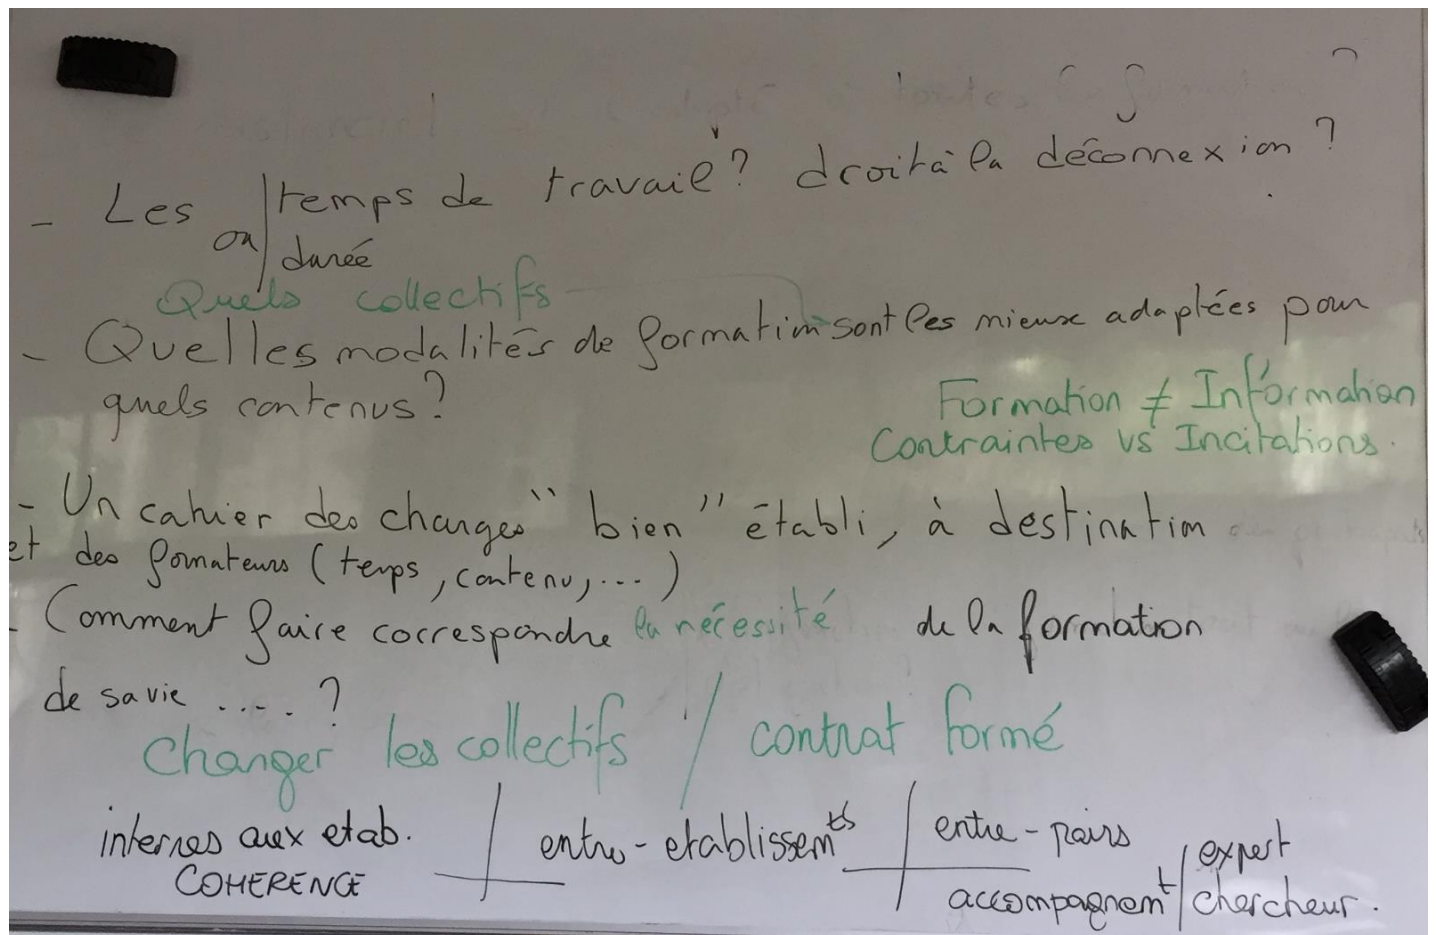 - Les temps de travail ? droit à la déconnexion ?
ou durée
Quels collectifs
- Quelles modalités de formation sont les mieux adaptées pour
quels contenus ?
Formation ≠ Information
Contraintes vs Incitations.
- Un cahier des charges "bien" établi, à destination
et des formateurs (temps, contenu, ...)
- Comment faire correspondre la nécessité de la formation
de sa vie .... ?
Changer les collectifs / contrat formé
internes aux etab. entre-etablissemts entre-pairs
COHERENCE accompagnemt / expert
chercheur.